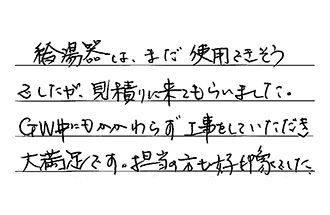 給湯器は、まだ使用できそう
でしたが、見積りに来てもらいました。
GW中にもかかわらず工事をしていただき
大満足です。担当の方も好印象でした。